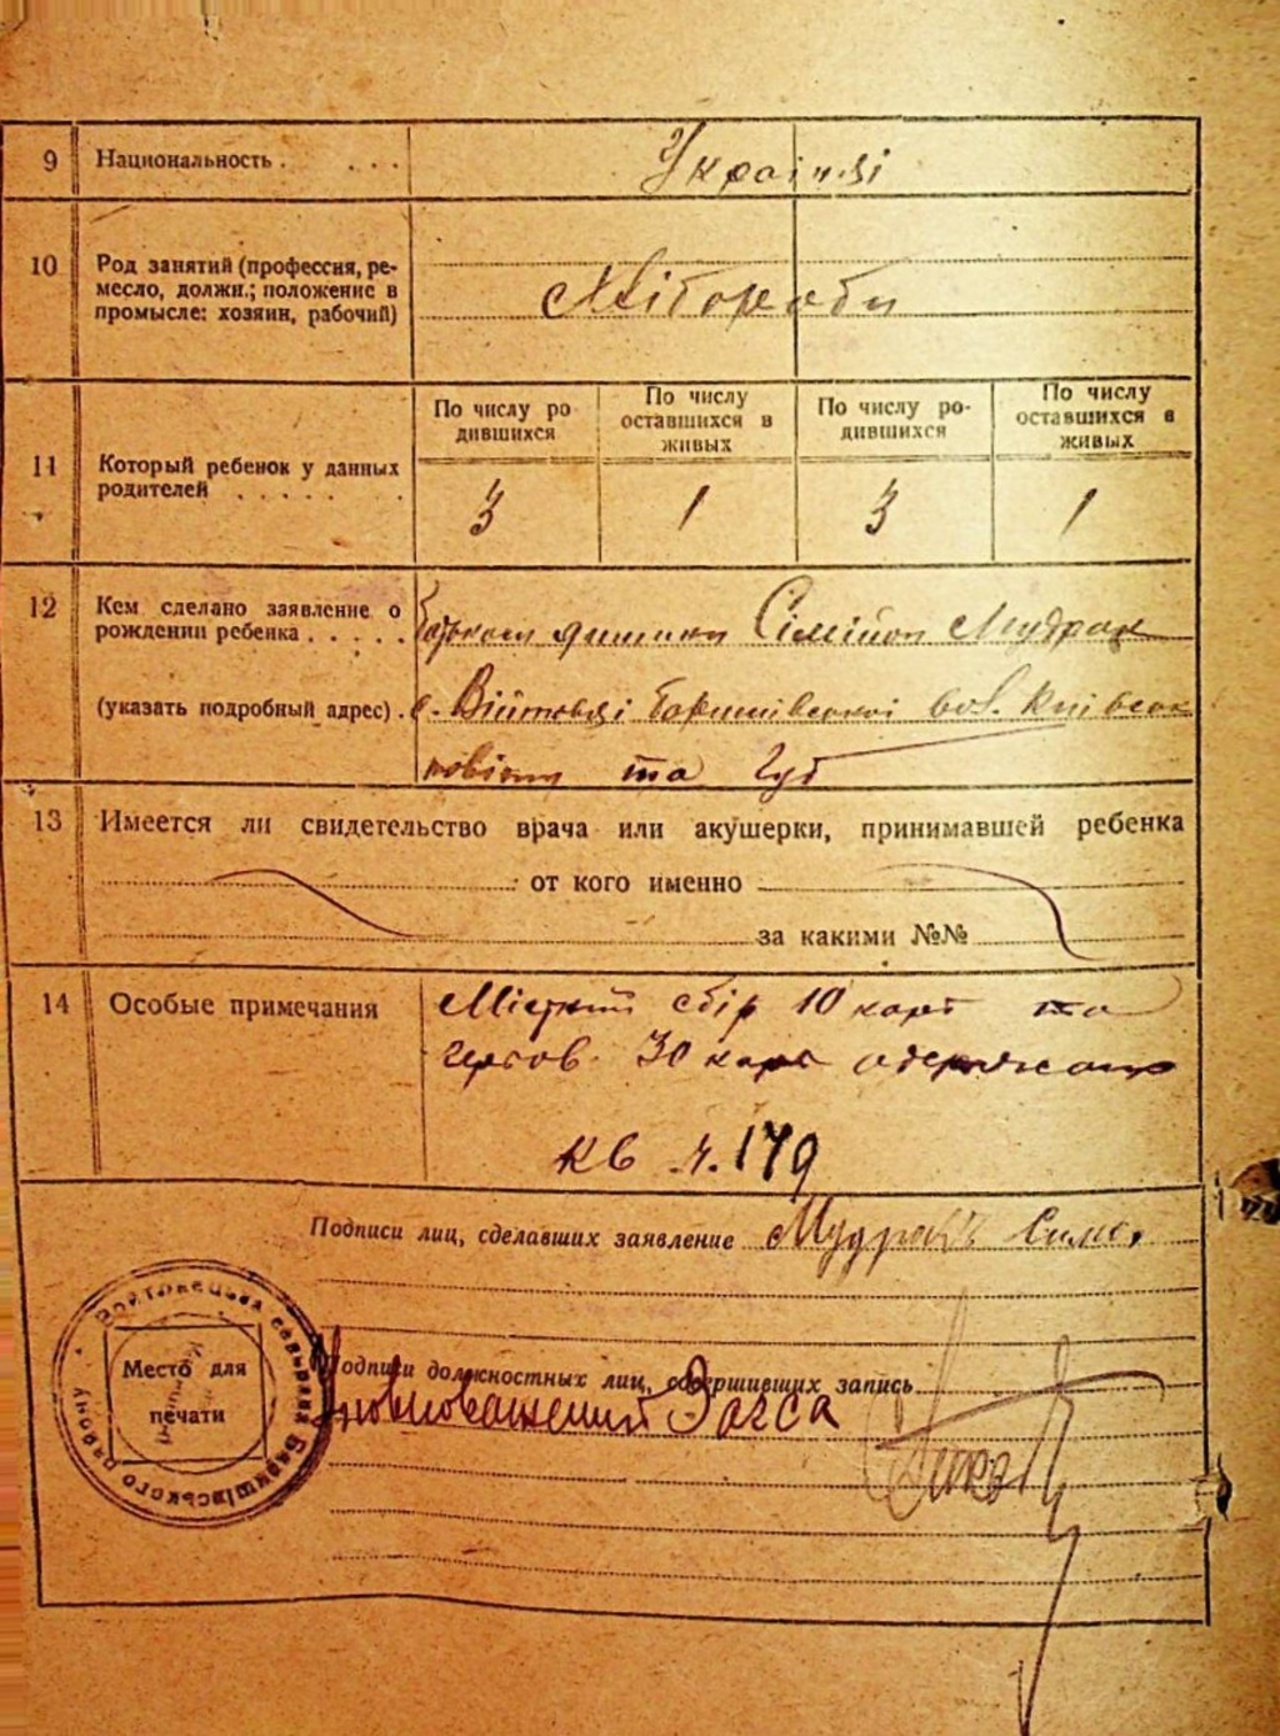 9 Национальность . . . . Українці
10 Род занятий (профессия, ре-
месло, должн.; положение в
промысле: хозяин, рабочий)
Хлібороби
11 Который ребенок у данных
родителей . . . . . .
По числу ро
дившихся
По числу
оставшихся в
живых
По числу ро-
дившихся
По числу
оставшихся в
живых
3 1 3 1
12 Кем сделано заявление о
рождении ребенка . . . . .
Батьком дитини Сімійон Мудрак
(указать подробный адрес) . с. Війтовці Баришівської вол. Київськ
повіту та губ
13 Имеется ли свидетельство врача или акушерки, принимавшей ребенка
от кого именно
за какими №№
14 Особые примечания
збір 10 карб та
30 карб одержано
кв ч. 179
Подписи лиц, сделавших заявление Мудракъ Симе.
Подписи должностных лиц, совершивших запись
Уповноважений Загса
Место для
печати
Баришівського району